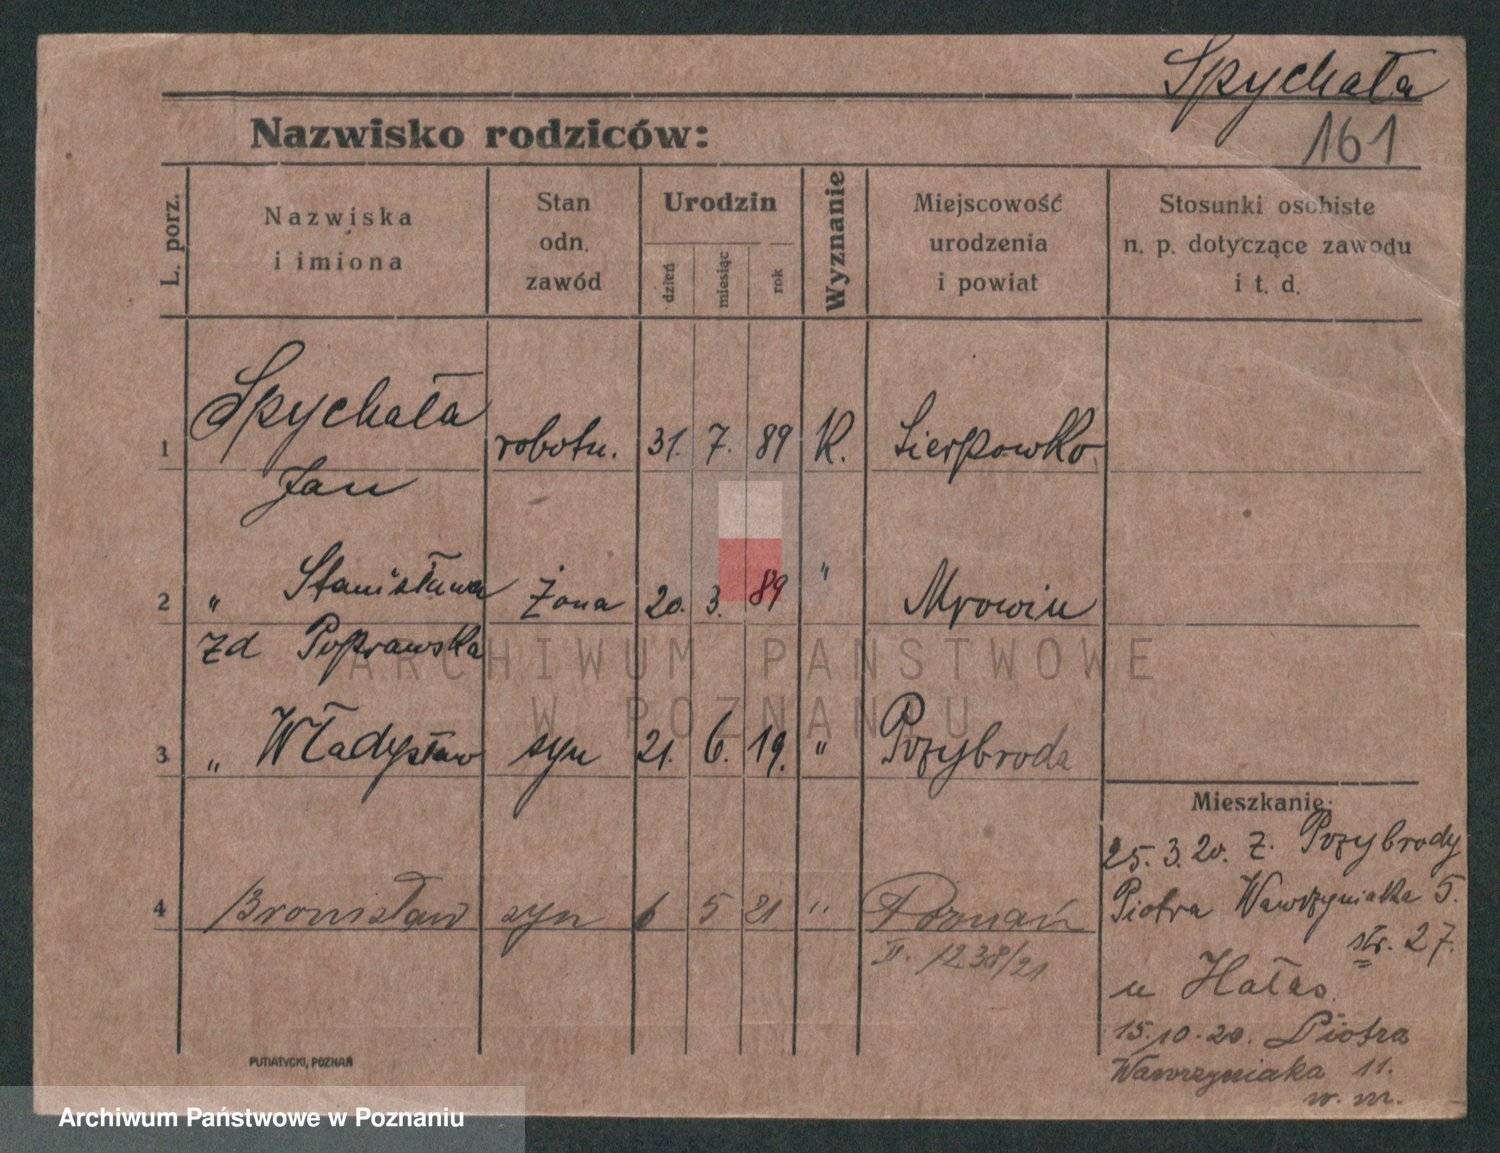 Spychała
161
Nazwisko rodziców:
L. porz.
Nazwiska
i imiona
Stan
odn.
zawód
Urodzin
dzień
miesiąc
rok
Wyznanie
Miejscowość
urodzenia
i powiat
Stosunki osobiste
n. p. dotyczące zawodu
i t. d.
1 Spychała robotn. 31. 7. 89 K. Sierpowko
Jan
2 " Stanisława żona 20. 3. 89 " Mrowin
zd Poprawska
3 " Władysław syn 21. 6. 19. " Przybroda
4 Bronisław syn 6 5 21 " Poznań
II. 1238/21
Mieszkanie:
25. 3. 20. z. Przybrody
Piotra Wawrzyniaka 5.
str. 27.
u Hałas.
15.10.20. Piotra
Wawrzyniaka 11.
w. m.
PUTIATYCKI, POZNAŃ
ARCHIWUM PAŃSTWOWE
W POZNANIU
Archiwum Państwowe w Poznaniu